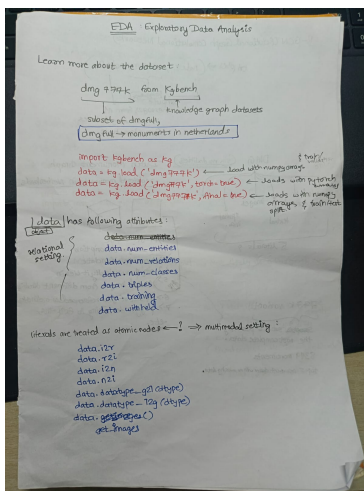 EDA Exploratory Data Analysis
Learn more about the dataset
dmg 777k from Kgbench
knowledge graph datasets
subset of dmgfull,
dmgfull → monuments in netherlands
import kgbench as kg
data = kg.load('dmg777k') ← load with numpy arrays
data = kg.load('dmg777k', torch=true) ← loads with pytorch
data = kg.load('dmg777k', final=true) ← loads with numpy
arrays & train/test
split
data has following attributes:
object
relational
setting.
data.num_entities
data.num_entities
data.num_relations
data.num_classes
data.triples
data.training
data.withheld
literals are treated as atomic nodes ← ! ⇒ multimodal setting :
data.i2r
data.r2i
data.i2n
data.n2i
data.datatype_g2l(dtype)
data.datatype_l2g(dtype)
data. ()
get_images